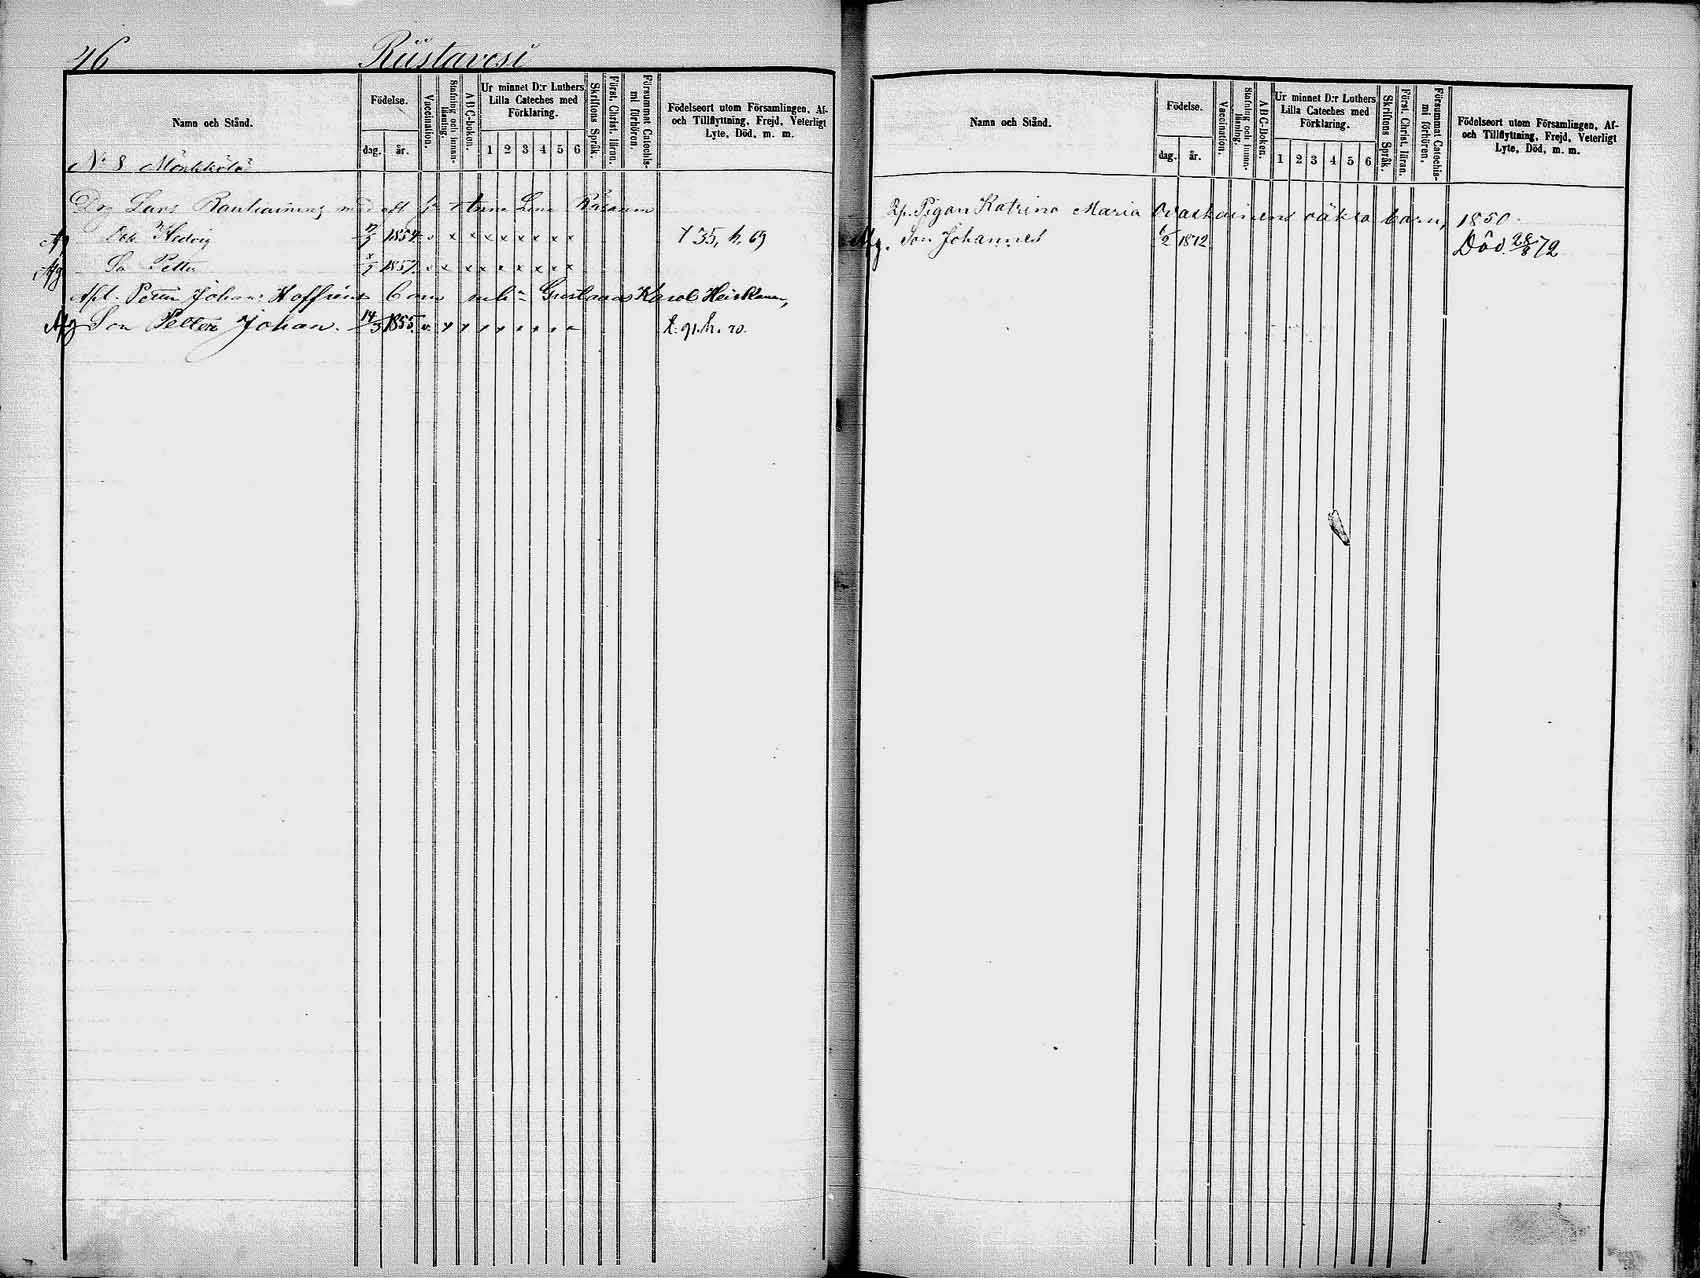 46 Riistavesi
Namn och Stånd.
Födelse.
dag. år.
Vaccination.
Stafning och Innan-läsning.
A B C-boken.
Ur minnet D:r Luthers Lilla Cateches med Förklaring.
1 2 3 4 5 6
Skriftens Språk.
Först. Christ. läran.
Försummat Catechis-mi förhören.
Födelseort utom Församlingen, Af- och Tillflyttning, Frejd, Veterligt Lyte, Död, m. m.
No 8 Mönkkölä
Drg Lars Rautiainens med Anna Lena Räsänen
Hedvig 1854 v x x x x x x x x 35, h, 69
Afg So Petter 1857 v x x x x x x x x
Petter Johan Hoffrens barn m h Gustava Karol. Heiskanen,
Afg Son Petter Johan. 14/3 1855. v. x x x x x x x 91. h. 70.
Namn och Stånd.
Födelse.
dag. år.
Vaccination.
Stafning och Innan-läsning.
A B C-boken.
Ur minnet D:r Luthers Lilla Cateches med Förklaring.
1 2 3 4 5 6
Skriftens Språk.
Först. Christ. läran.
Försummat Catechis-mi förhören.
Födelseort utom Församlingen, Af- och Tillflyttning, Frejd, Veterligt Lyte, Död, m. m.
Pigan Katrina Maria Ovaskainens oäkta barn, 1850.
Afg. Son Johannes 6/2 1872 Död. 28/8 72